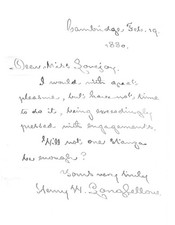 Cambridge Feb. 19.
1880.
Dear Miss Lovejoy,
I would with great
pleasure, but have not time
to do it, being exceedingly
pressed with engagements.
Will not one stanza
be enough?
Yours very truly
Henry W. Longfellow